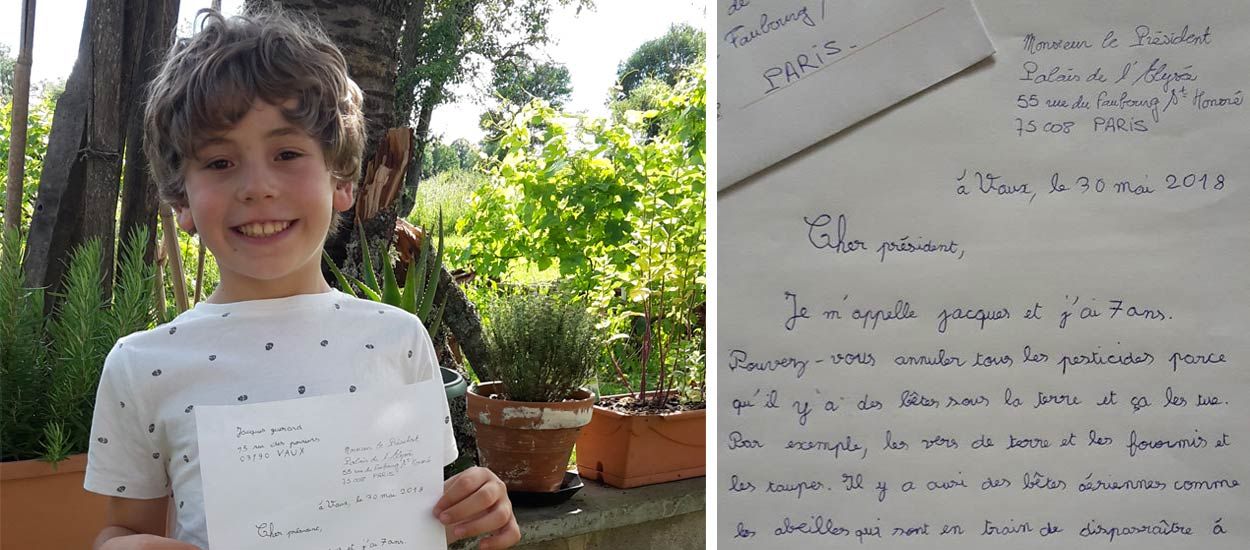 Jacques guerard
95 rue des pommiers
03190 VAUX
Monsieur le Président
Palais de l'Elysé
55 rue du Faubourg St Honoré
75008 PARIS
à Vaux, le 30 mai 2018
Cher président,
et j'ai 7 ans.
de
Faubourg,
PARIS-
Monsieur le Président
Palais de l'Elysé
55 rue du Faubourg St Honoré
75 008 PARIS
à Vaux, le 30 mai 2018
Cher président,
Je m'appelle jacques et j'ai 7 ans.
Pouvez-vous annuler tous les pesticides parce
qu'il y'a des bêtes sous la terre et ça les tue.
Par exemple, les vers de terre et les fourmis et
les taupes. Il y a ausi des bêtes aériennes comme
les abeilles qui sont en train de disparraître à